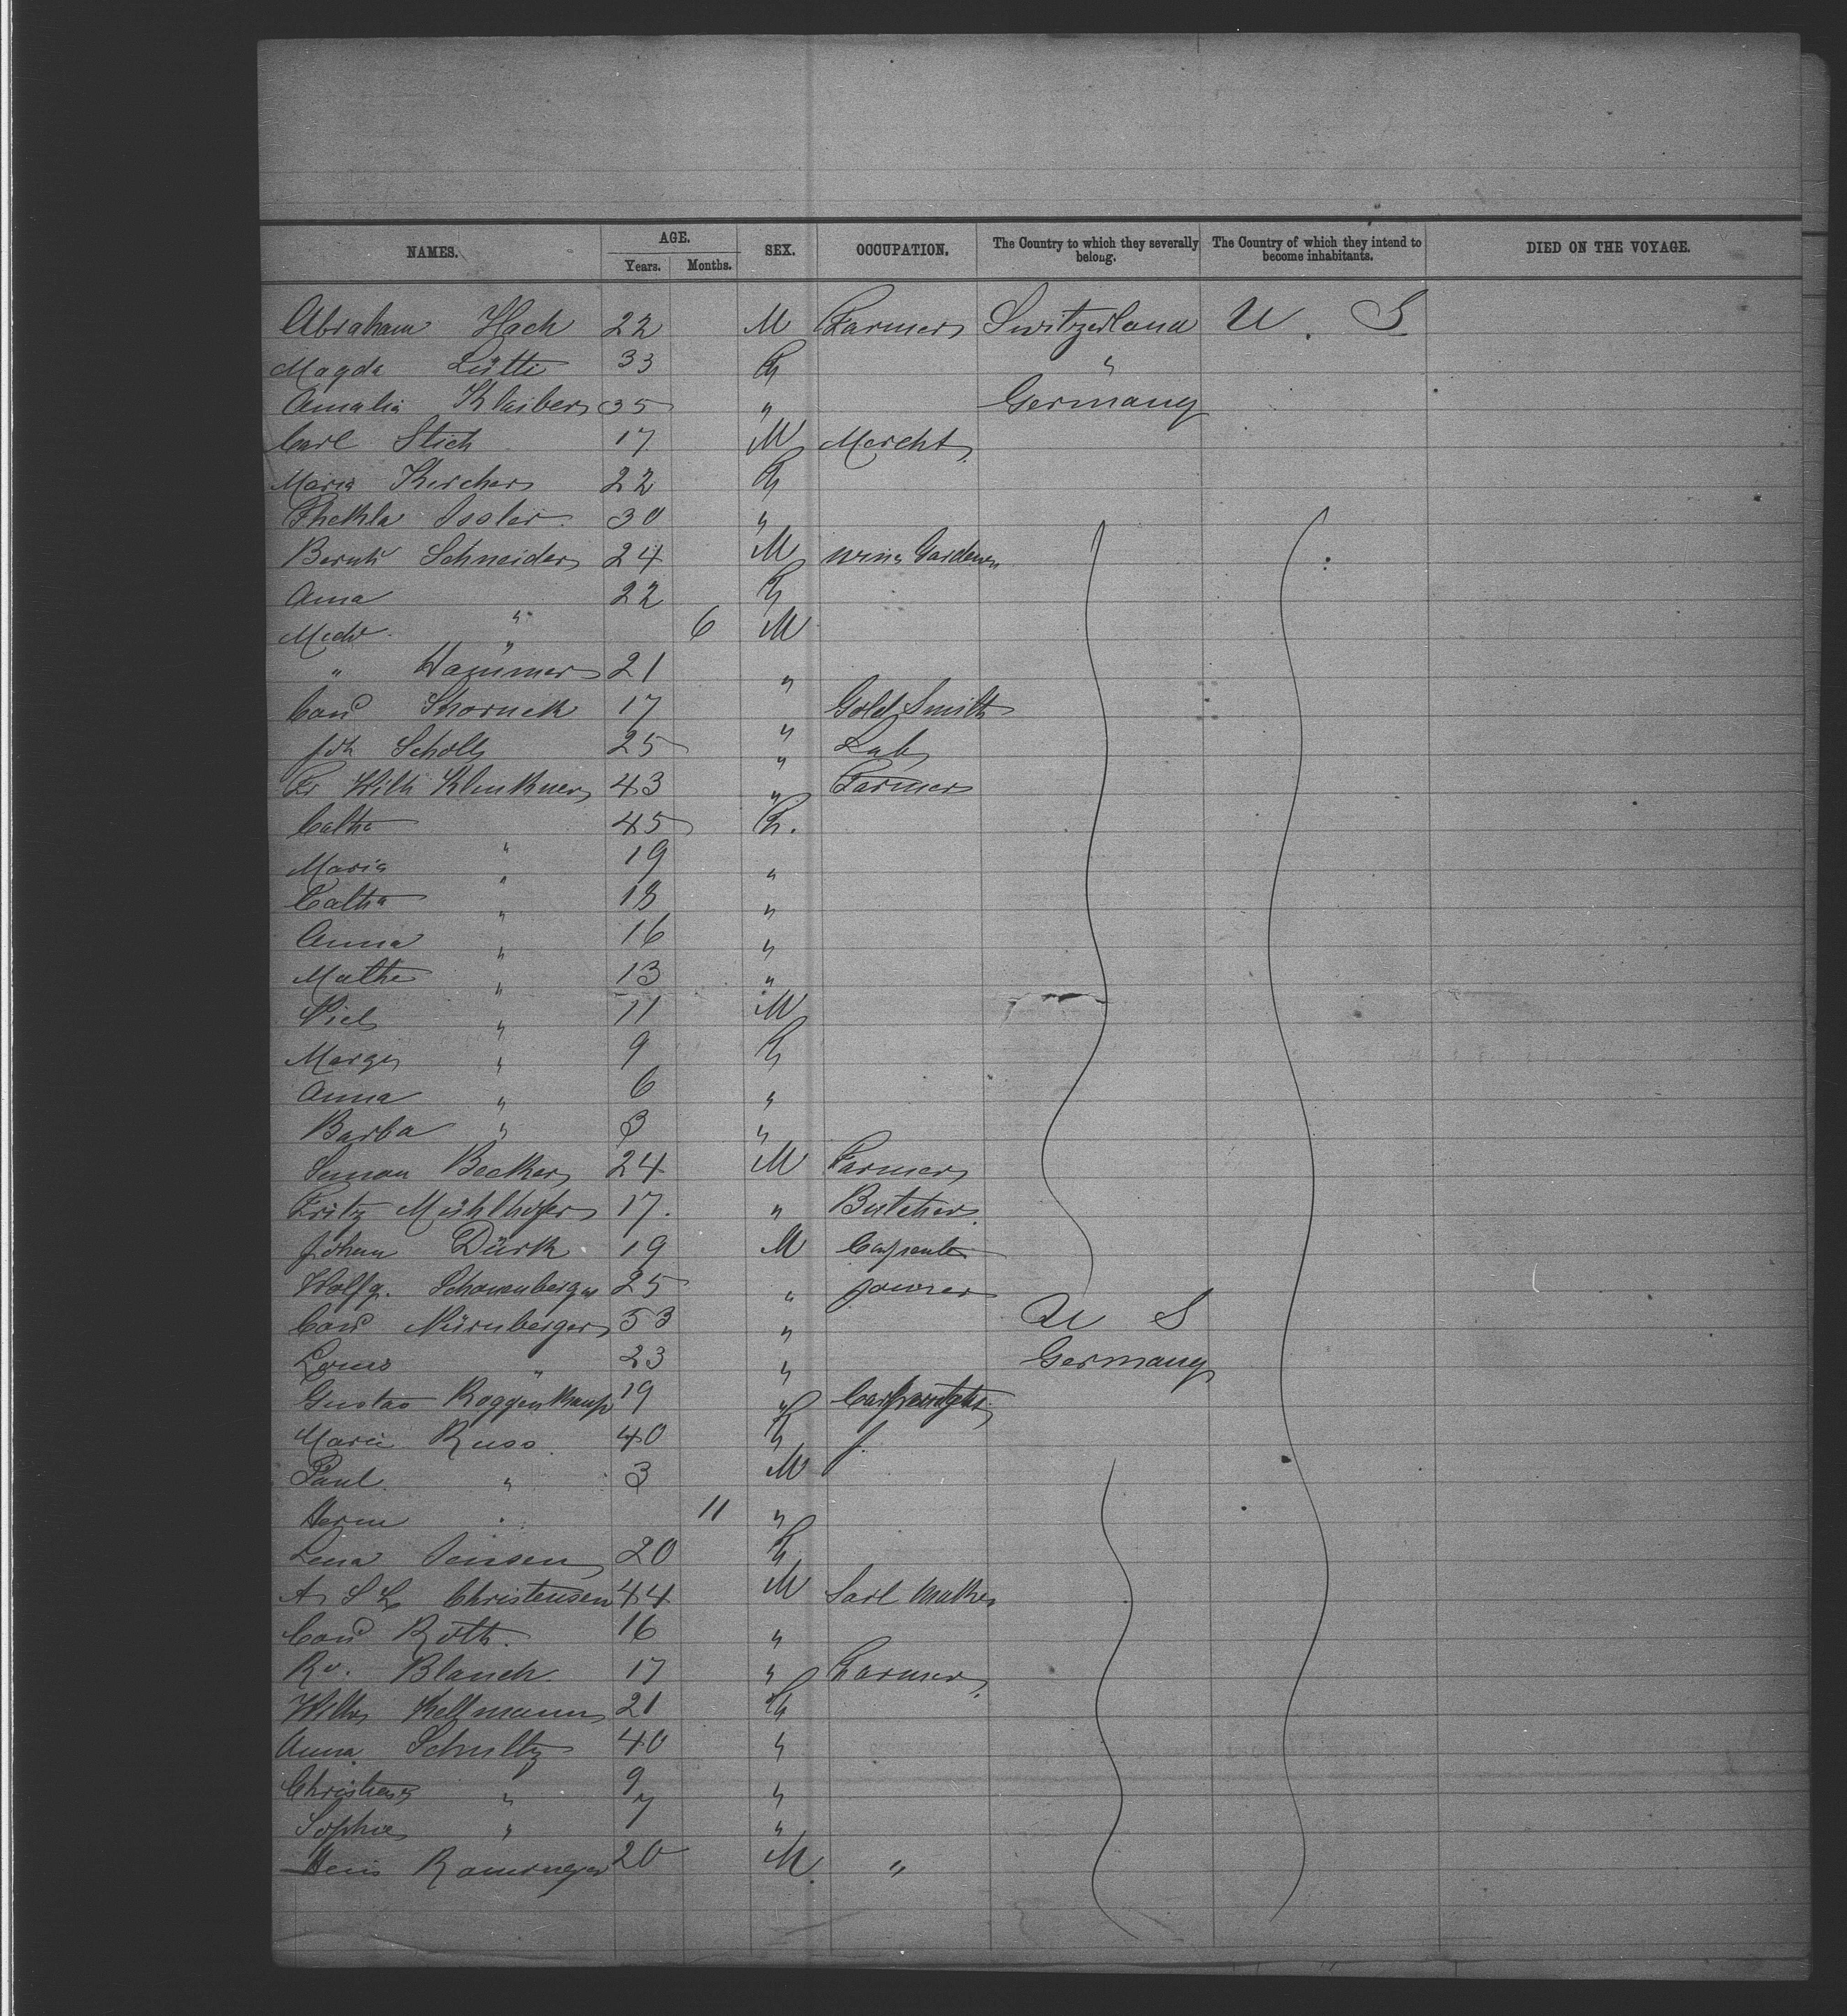 NAMES. AGE. SEX. OCCUPATION. The Country to which they severally belong. The Country of which they intend to become inhabitants. DIED ON THE VOYAGE.
Years. Months.
Abraham Hach 22 M Farmer Switzerland U. S
Magda Lütti 33 F "
Amalia Klaiber 35 " Germany
Carl Stich 17 M Mercht
Maria Kercher 22 F
Thekla Issler 30 "
Bernh Schneider 24 M Gardener
Anna " 22 F
" 6 M
" Hammer 21 "
17 " Gold Smith
Joh Scholl 25 " Lab
Fr Wilh Klinkner 43 " Farmer
Catha " 45 F.
Maria " 19 "
Catha " 18 "
Anna " 16 "
Mathe " 13 "
" 11 M
Marga " 9 F
Anna " 6 "
Barba " 3 "
Simon Becker 24 M Farmer
Fritz Mühlhofer 17. " Butcher
Johann Dürk 19 M Carpenter
Wolfg. 25 " Joiner
Nürnberger 53 " U S
Louis " 23 " Germany
Gustav Roggenkamp 19 "
Marie Russ. 40 F
Paul " 3 M
Herm " 11 "
Lena Jensen 20 F
A S L Christensen 44 M Sail Maker
Roth. 16 "
Blanch 17 " Farmer
Kellmann 21 F
Anna Schultz 40 "
" 9 "
Sophie " 7 "
20 M "